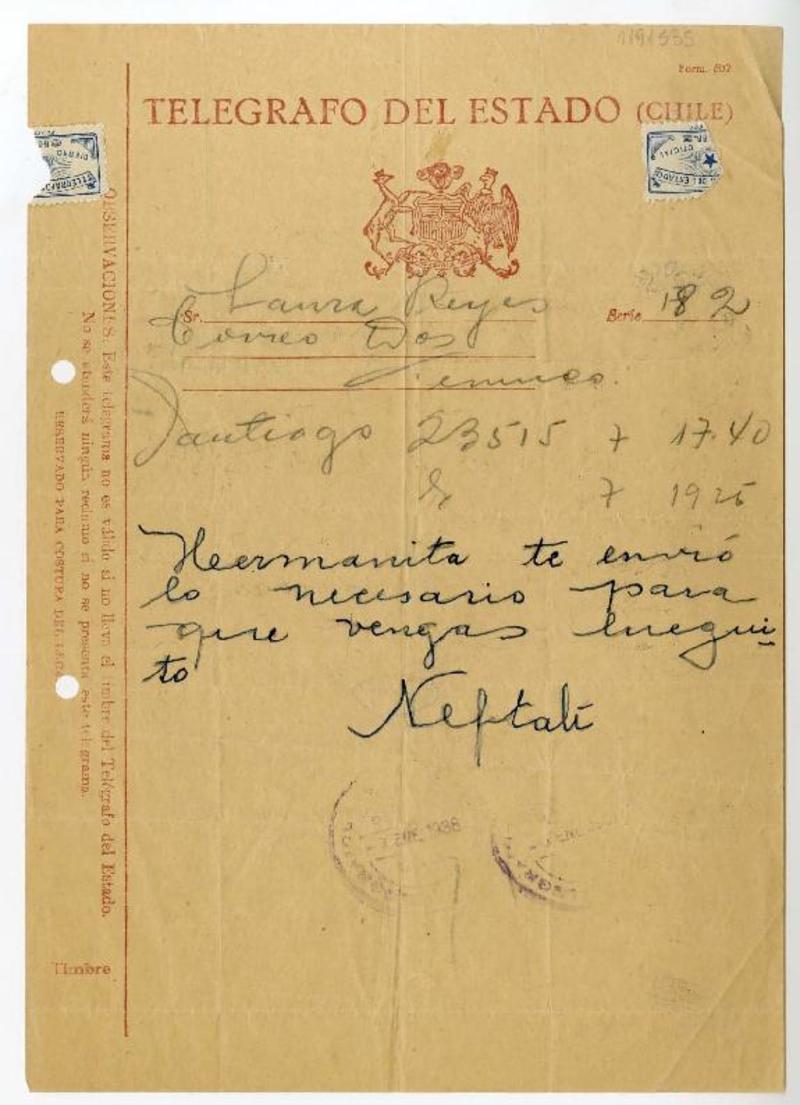 1191535
Form. 502
TELEGRAFO DEL ESTADO (CHILE)
Sr. Laura Reyes
Serie 182
Correo Dos
Temuco.
Santiago 23515 7 17.40
7 1925
Hermanita te envió
lo necesario para
que vengas luegui
to
Neftalí
ENE 1938
OBSERVACIONES: Este telegrama no es válido si no lleva el timbre del Telégrafo del Estado.
No se atenderá ningún reclamo si no se presenta este telegrama.
RESERVADO PARA COSTURA DEL
Timbre